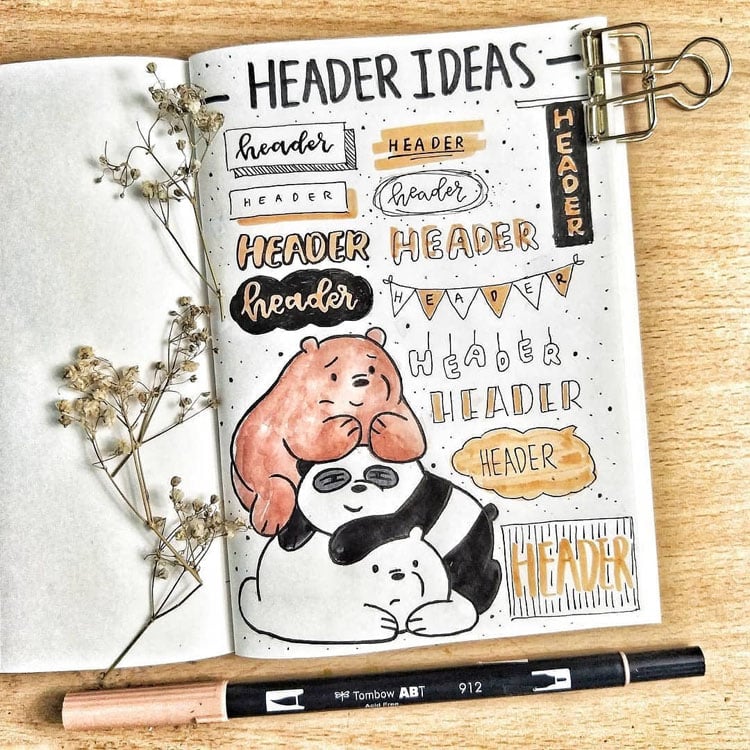 HEADER IDEAS
header
HEADER
HEADER
HEADER
header
HEADER
HEADER
header
HEADER
HEADER
HEADER
HEADER
HEADER
Tombow ABT 912
Acid Free